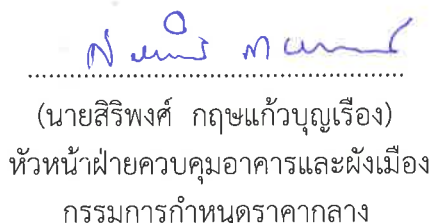 (นายสิริพงศ์ กฤษแก้วบุญเรือง)
หัวหน้าฝ่ายควบคุมอาคารและผังเมือง
กรรมการกำหนดราคากลาง